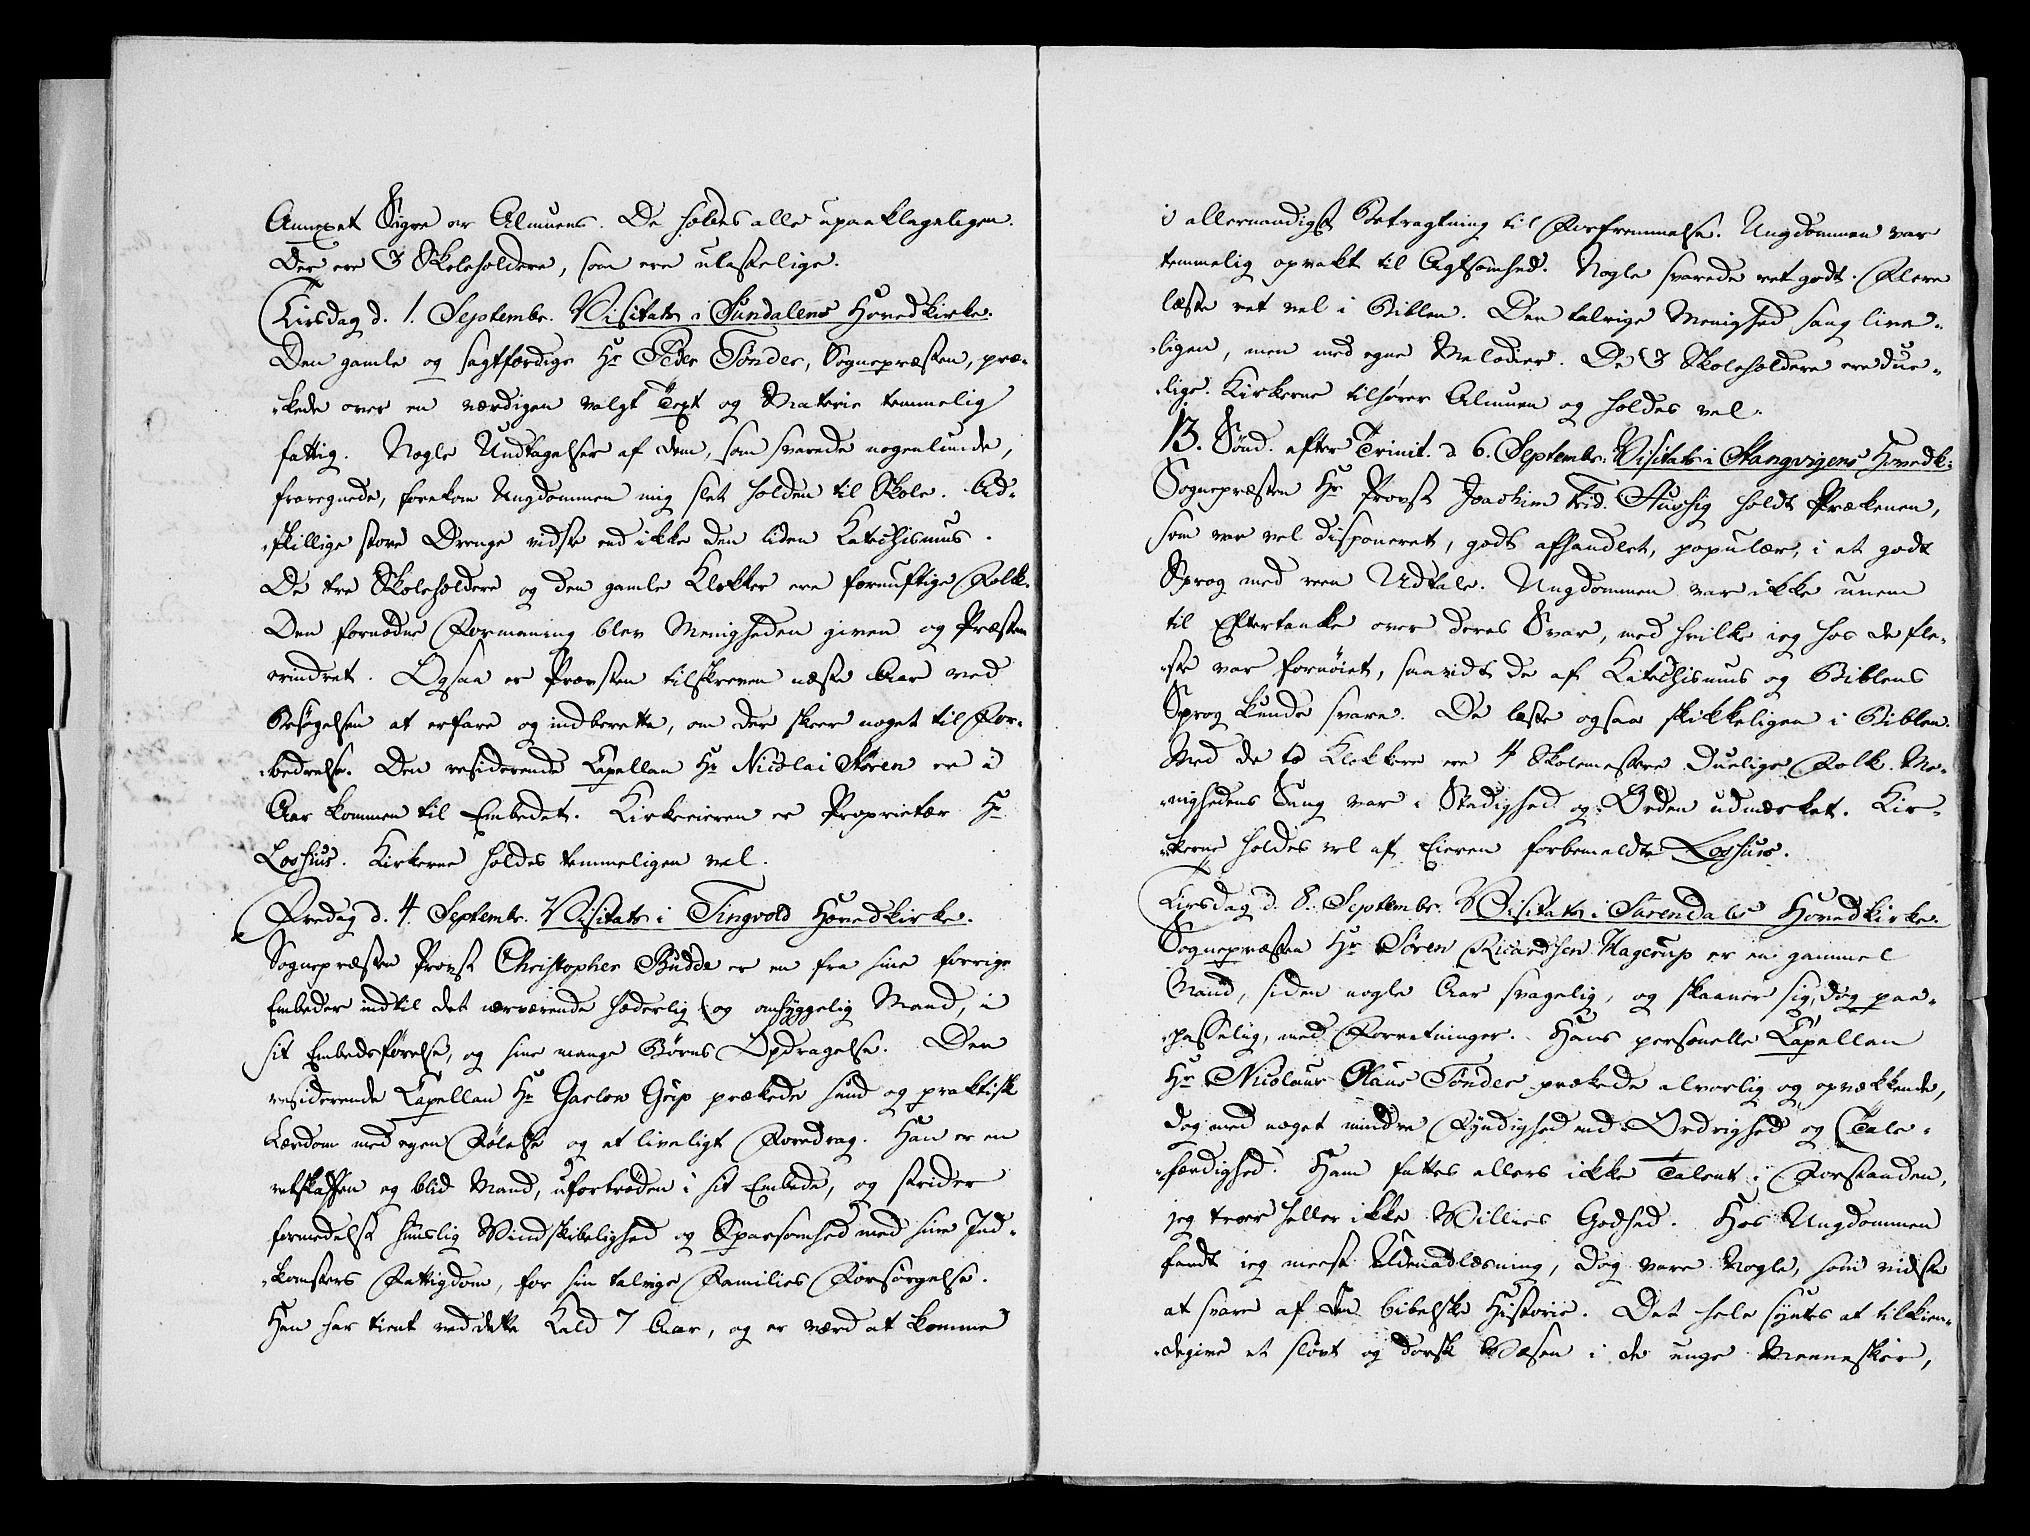 Annexet Sigre er Almuens. De holdes alle upaaklageligen.
Der ere 3 Skoleholdere, som ere ulastelige.
Tirsdag d. 1. Septembr. Visitats i Sundalens Hovedkirke.
Den gamle og sagtfærdige Hr Peder Tønder, Sognepræsten, præ-
-kede over en værdigen valgt Text og Materie temmelig
fattig. Nogle Undtagelser af dem, som svarede nogenlunde,
fraregnede, forekom Ungdommen mig slet holden til Skole. Ad-
-skillige store Drenge vidste end ikke den liden Katechismus.
De tre Skoleholdere og den gamle Klokker ere fornuftige Folk.
Den fornødne Formaning blev Menigheden given og Præsten
erindret. Ogsaa er Provsten tilskreven næste Aar ved
Besøgelsen at erfare og indberette, om der skeer noget til For-
-bedrelse. Den residerende Capellan Hr Nicolai Støren er i
Aar kommen til Embedet. Kirkeeieren er Proprietær Hr
Lossius. Kirkerne holdes temmeligen vel.
Fredag d. 4. Septembr. Visitats i Tingvold Hovedkirke.
Sognepræsten Provst Christopher Budde er en fra sine forrige
Embeder indtil det nærværende hæderlig og omhyggelig Mand, i
sit Embedsførelse, og sine mange Børns Opdragelse. Den
residerende Capellan Hr Carlow Grip prækede sund og praktisk
Lærdom med egen Følelse og et liveligt Foredrag. Han er en
retskaffen og blid Mand, ufortrøden i sit Embede, og strider
formedelst huuslig Vindskibelighed og Sparsomhed med sine Ind-
-komsters Fattigdom, for sin talrige Families Forsørgelse.
Han har tient ved dette Kald 7 Aar, og er værd at komme
i allernaadigst Betragtning til Forfremmelse. Ungdommen var
temmelig opvakt til Agtsomhed. Nogle svarede ret godt. Flere
læste ret vel i Biblen. Den talrige Menighed sang live-
-ligen, men med egne Melodier. De 3 Skoleholdere ere due-
-lige. Kirkerne tilhører Almuen og holdes vel.
13. Sønd. efter Trinit. d 6. Septembr. Visitats i Stangvigens Hovedk.
Sognepræsten Hr Provst Joachim Frid. Aussig holdt Prækenen,
som var vel disponeret, godt afhandlet, populær, i et godt
Sprog med reen Udtale. Ungdommen var ikke unem
til Eftertanke over deres Svar, med hvilke jeg hos de fle-
-ste var fornøiet, saavidt de af Katechismus og Biblens
Sprog kunde svare. De læste ogsaa skikkeligen i Biblen.
Med de to Klokkere ere 4 Skolemestere duelige Folk. Me-
-nighedens Sang var i Stadighed og Orden udmærket. Kir-
-kerne holdes vel af Eieren forbemeldte Lossius.
Tirsdag d. 8. Septembr. Visitats i Surendals Hovedkirke.
Sognepræsten Hr Søren Ricardsen Hagerup er en gammel
Mand, siden nogle Aar svagelig, og skaaner sig, dog paa-
-passelig, med Forretninger. Hans personelle Capellan
Hr Nicolaus Olaus Tønder prækede alvorlig og opvækkende,
dog med noget mindre Fyndighed end Ordrighed og Tale-
-færdighed. Ham fattes ellers ikke Talent i Forstanden,
jeg troer heller ikke Villies Godhed. Hos Ungdommen
fandt jeg meest Udenadlæsning, dog vare Nogle, som vidste
at svare af den bibelske Historie. Det hele syntes at tilkien-
-degive et sløvt og dorsk Væsen i de unge Mennesker,